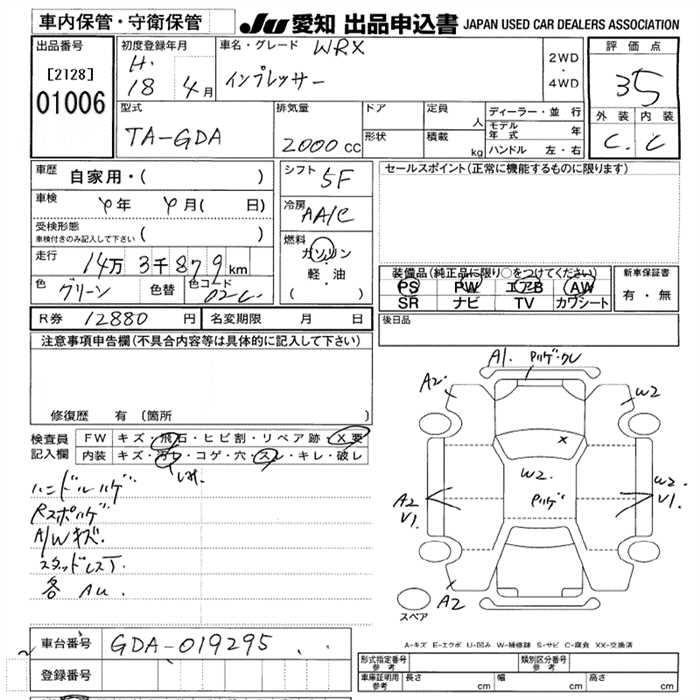 車内保管・守衛保管
JU 愛知 出品申込書 JAPAN USED CAR DEALERS ASSOCIATION
出品番号
[2128]
01006
初度登録年月
H.
18 4月
車名・グレード WRX
インプレッサー
2WD
・
4WD
評価点
35
外装 内装
C. C
型式
TA-GDA
排気量
2000 CC
ドア
形状
定員 人
積載 kg
ディーラー・並行
モデル年式 年
ハンドル 左・右
車歴 自家用・( )
車検 年 月( 日)
受検形態
車検付きのみ記入して下さい ( )
走行 14万3千879km
色 グリーン 色替 色コード 02C
シフト 5F
冷房 AA/C
燃料
ガソリン
軽・油
( )
セールスポイント(正常に機能するものに限ります)
装備品(純正品に限り○をつけてください)
PS PW エアB AW
SR ナビ TV カワシート
新車保証書
有・無
R券 12880 円 名変期限 月 日
後日品
注意事項申告欄(不具合内容等は具体的に記入して下さい)
修復歴 有 〔箇所
検査員
記入欄
FW キズ・飛石・ヒビ割・リペア跡・X要
内装 キズ・コゲ・穴・スレ・キレ・破レ
シミ
ハンドルハゲ
Rスポハゲ
A/Wキズ
スタッドレスT.
各 AU.
A1. ハゲ・ワレ
A2.
W2
W2.
ハゲ
A2
V1
W2.
V1.
A2
スペア
A-キズ E-エクボ U-凹み W-補修跡 S-サビ C-腐食 XX-交換済
車台番号 GDA-019295
登録番号
形式指定番号
参考
類別区分番号
参考
車庫証明用
参考
長さ cm 幅 cm 高さ cm